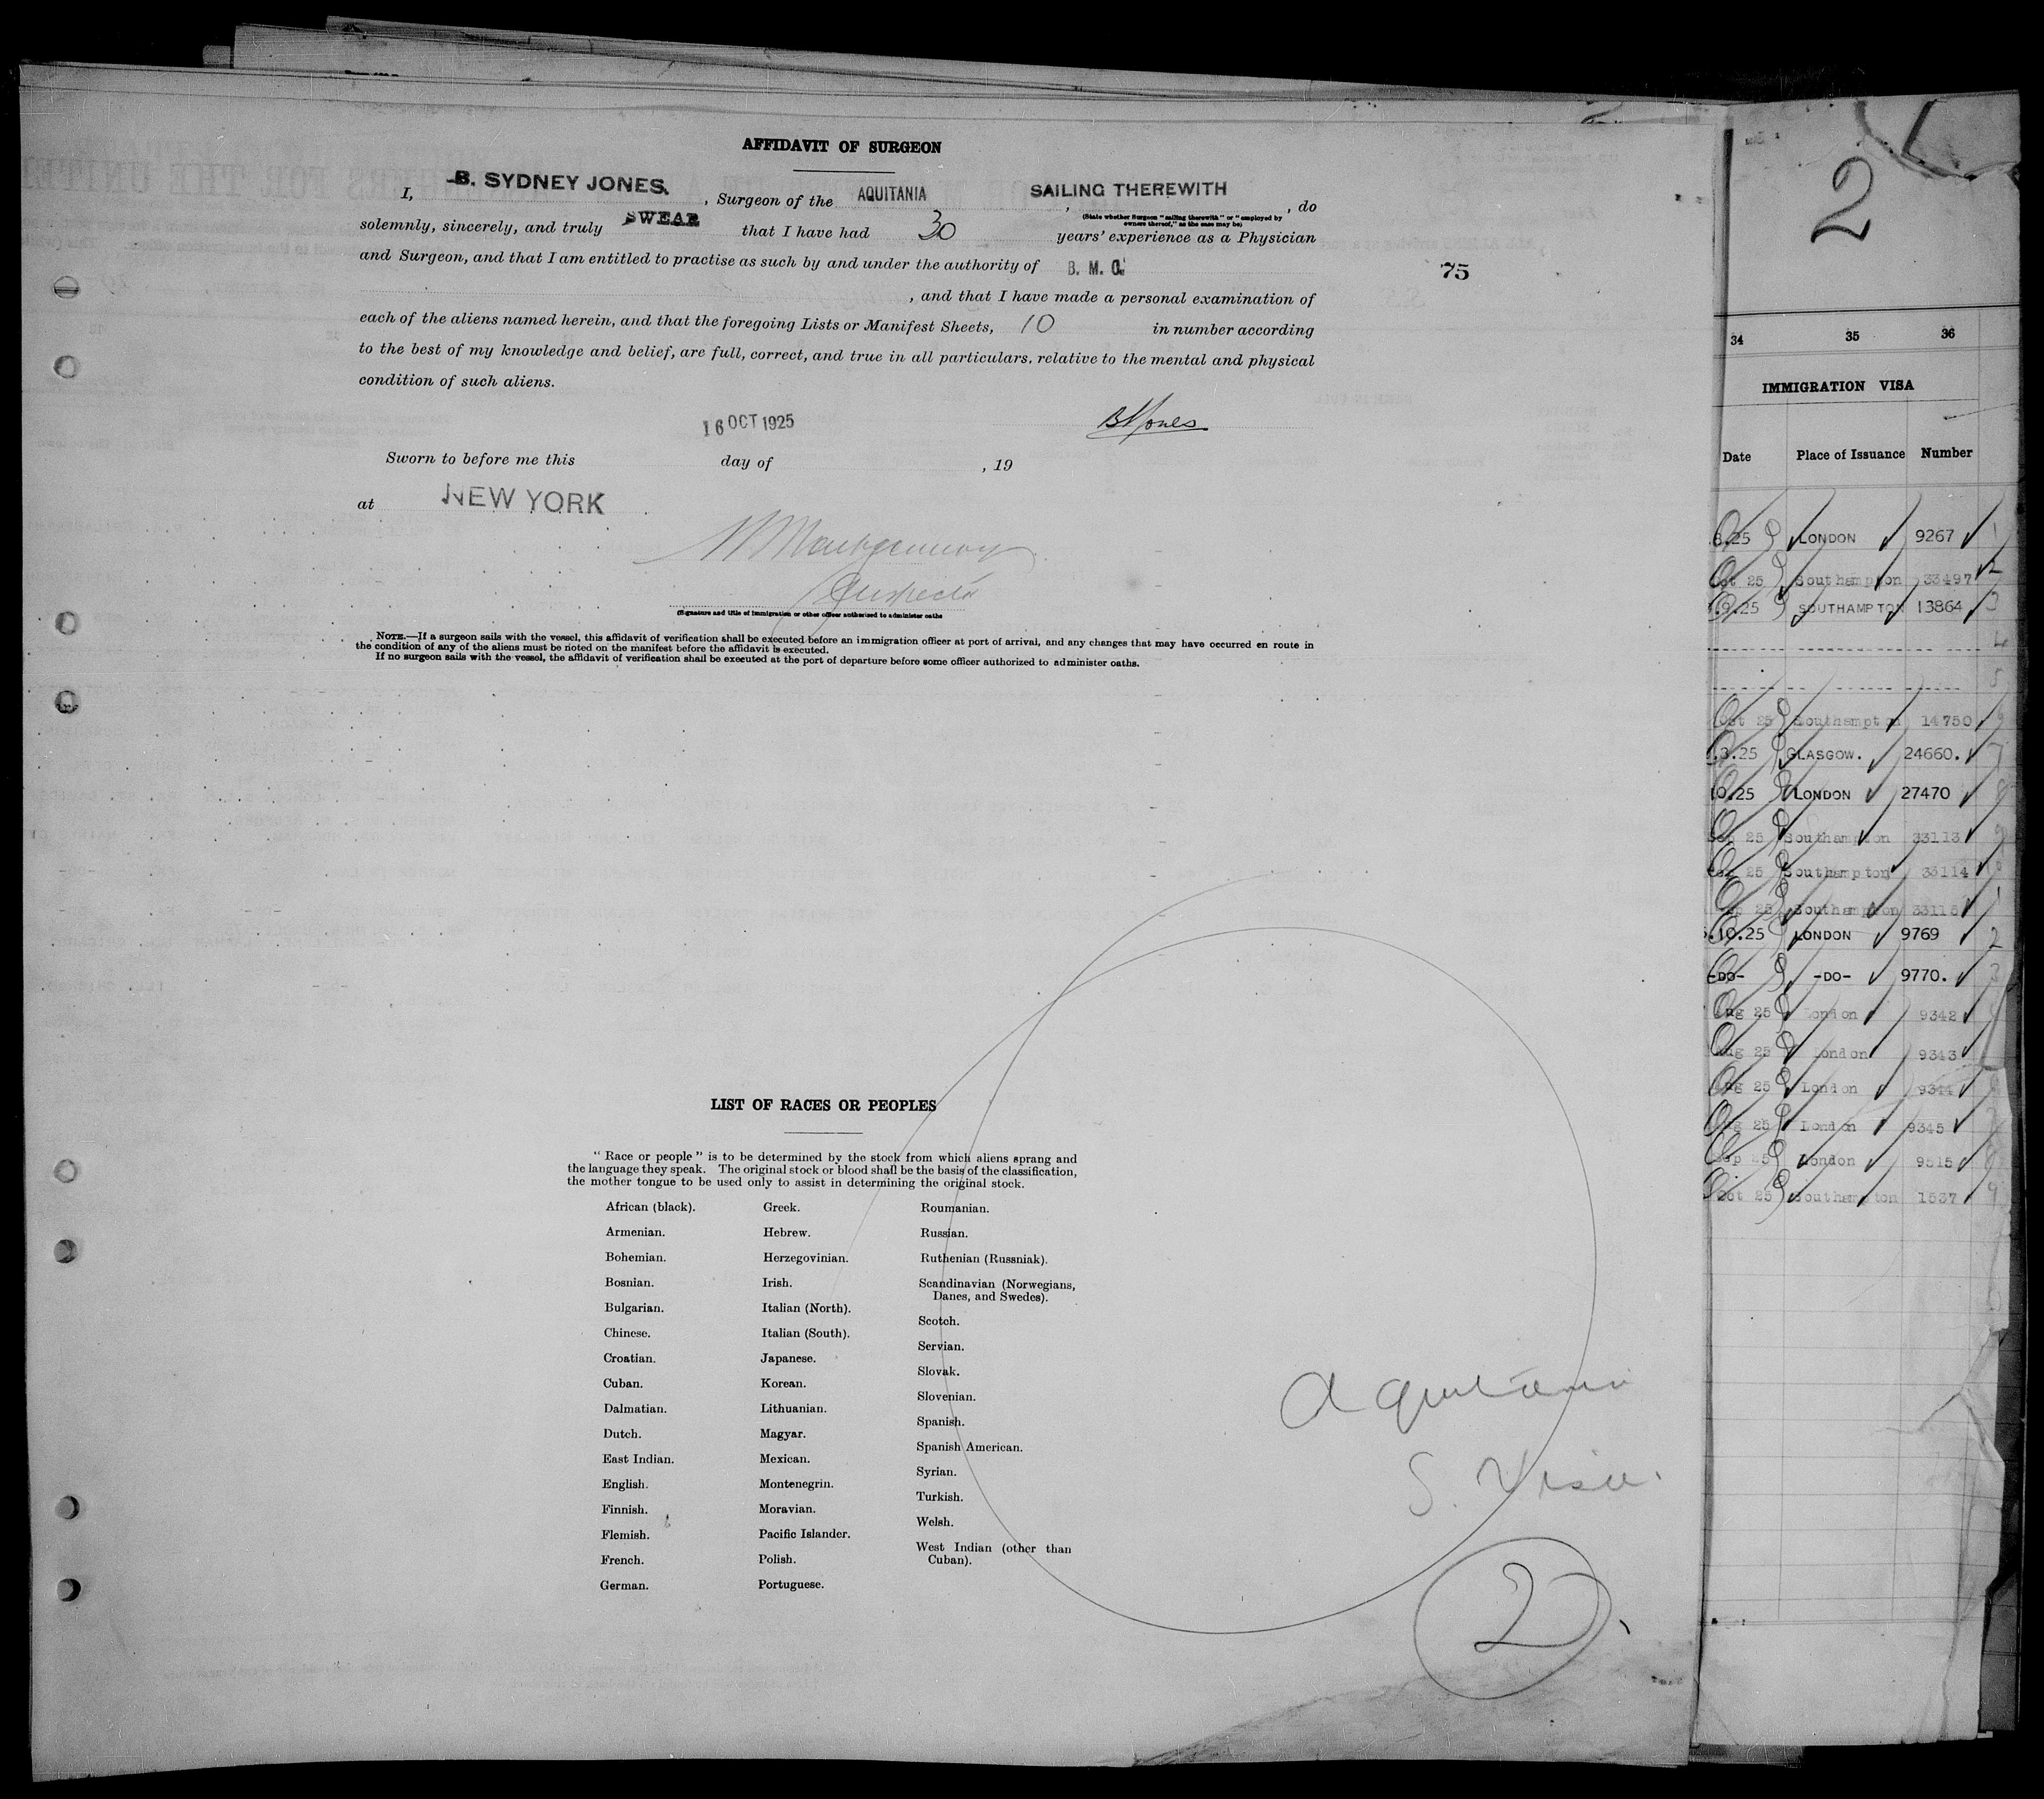 AFFIDAVIT OF SURGEON
I, B. SYDNEY JONES. , Surgeon of the AQUITANIA , SAILING THEREWITH , do
(State whether Surgeon "sailing therewith" or "employed by
owners thereof," as the case may be)
solemnly, sincerely, and truly SWEAR that I have had 30 years' experience as a Physician
and Surgeon, and that I am entitled to practise as such by and under the authority of B. M. C.
, and that I have made a personal examination of
each of the aliens named herein, and that the foregoing Lists or Manifest Sheets, 10 in number according
to the best of my knowledge and belief, are full, correct, and true in all particulars, relative to the mental and physical
condition of such aliens.
75
BSJones
16 OCT 1925
Sworn to before me this day of , 19
at NEW YORK
Montgomery
Inspector
(Signature and title of immigration or other officer authorized to administer oaths
NOTE.—If a surgeon sails with the vessel, this affidavit of verification shall be executed before an immigration officer at port of arrival, and any changes that may have occurred en route in
the condition of any of the aliens must be noted on the manifest before the affidavit is executed.
If no surgeon sails with the vessel, the affidavit of verification shall be executed at the port of departure before some officer authorized to administer oaths.
LIST OF RACES OR PEOPLES
"Race or people" is to be determined by the stock from which aliens sprang and
the language they speak. The original stock or blood shall be the basis of the classification,
the mother tongue to be used only to assist in determining the original stock.
African (black).
Armenian.
Bohemian.
Bosnian.
Bulgarian.
Chinese.
Croatian.
Cuban.
Dalmatian.
Dutch.
East Indian.
English.
Finnish.
Flemish.
French.
German.
Greek.
Hebrew.
Herzegovinian.
Irish.
Italian (North).
Italian (South).
Japanese.
Korean.
Lithuanian.
Magyar.
Mexican.
Montenegrin.
Moravian.
Pacific Islander.
Polish.
Portuguese.
Roumanian.
Russian.
Ruthenian (Russniak).
Scandinavian (Norwegians,
Danes, and Swedes).
Scotch.
Servian.
Slovak.
Slovenian.
Spanish.
Spanish American.
Syrian.
Turkish.
Welsh.
West Indian (other than
Cuban).
Aquitania
S. Visa.
2
2
34 35 36
IMMIGRATION VISA
Date Place of Issuance Number
.8.25 LONDON 9267 1
Oct 25 Southampton 33497 2
.9.25 SOUTHAMPTON 13864 3
4
5
Oct 25 Southampton 14750
.3.25 GLASGOW. 24660. 7
10.25 LONDON 27470 8
Sep 25 Southampton 33113 9
25 Southampton 33114
Sep 25 Southampton 33115 1
.10.25 LONDON 9769 2
-DO- -DO- 9770. 3
Aug 25 London 9342
Aug 25 London 9343
Aug 25 London 9344
Aug 25 London 9345
Sep 25 London 9515
Oct 25 Southampton 1537 9